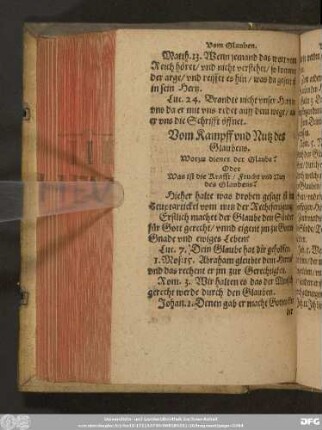 Vom Glauben.
Matth. 13. Wenn jemand das wort vom
Reich höret / vnd nicht verstehet / so kommet
der arge / vnd reisset es hin / was da gesäet
in sein Hertz.
Luc. 24. Brandte nicht vnser Hertz
vns da er mit vns redet auff dem wege /
er vns die Schrifft öffnet.
Vom Kampff vnd Nutz des
Glaubens.
Worzu dienet der Glaube?
Oder
Was ist die Krafft / Frucht vnd Nutz
des Glaubens?
Hieher halte was droben gesagt ist im
Heuptstücke von der Rechtfertigung
Erstlich machet der Glaube den Sünder
für Gott gerecht / vnnd eigent jm zu Gottes
Gnade vnd ewiges Leben?
Luc. 7. Dein Glaube hat dir geholffen.
1. Mos. 15. Abraham gleubte dem HErrn
vnd das rechent er jm zur Gerechtigkeit.
Rom. 3. Wir halten es das der Mensch
gerecht werde durch den Glauben.
Johan. 1. Denen gab er macht Gottes
DFG